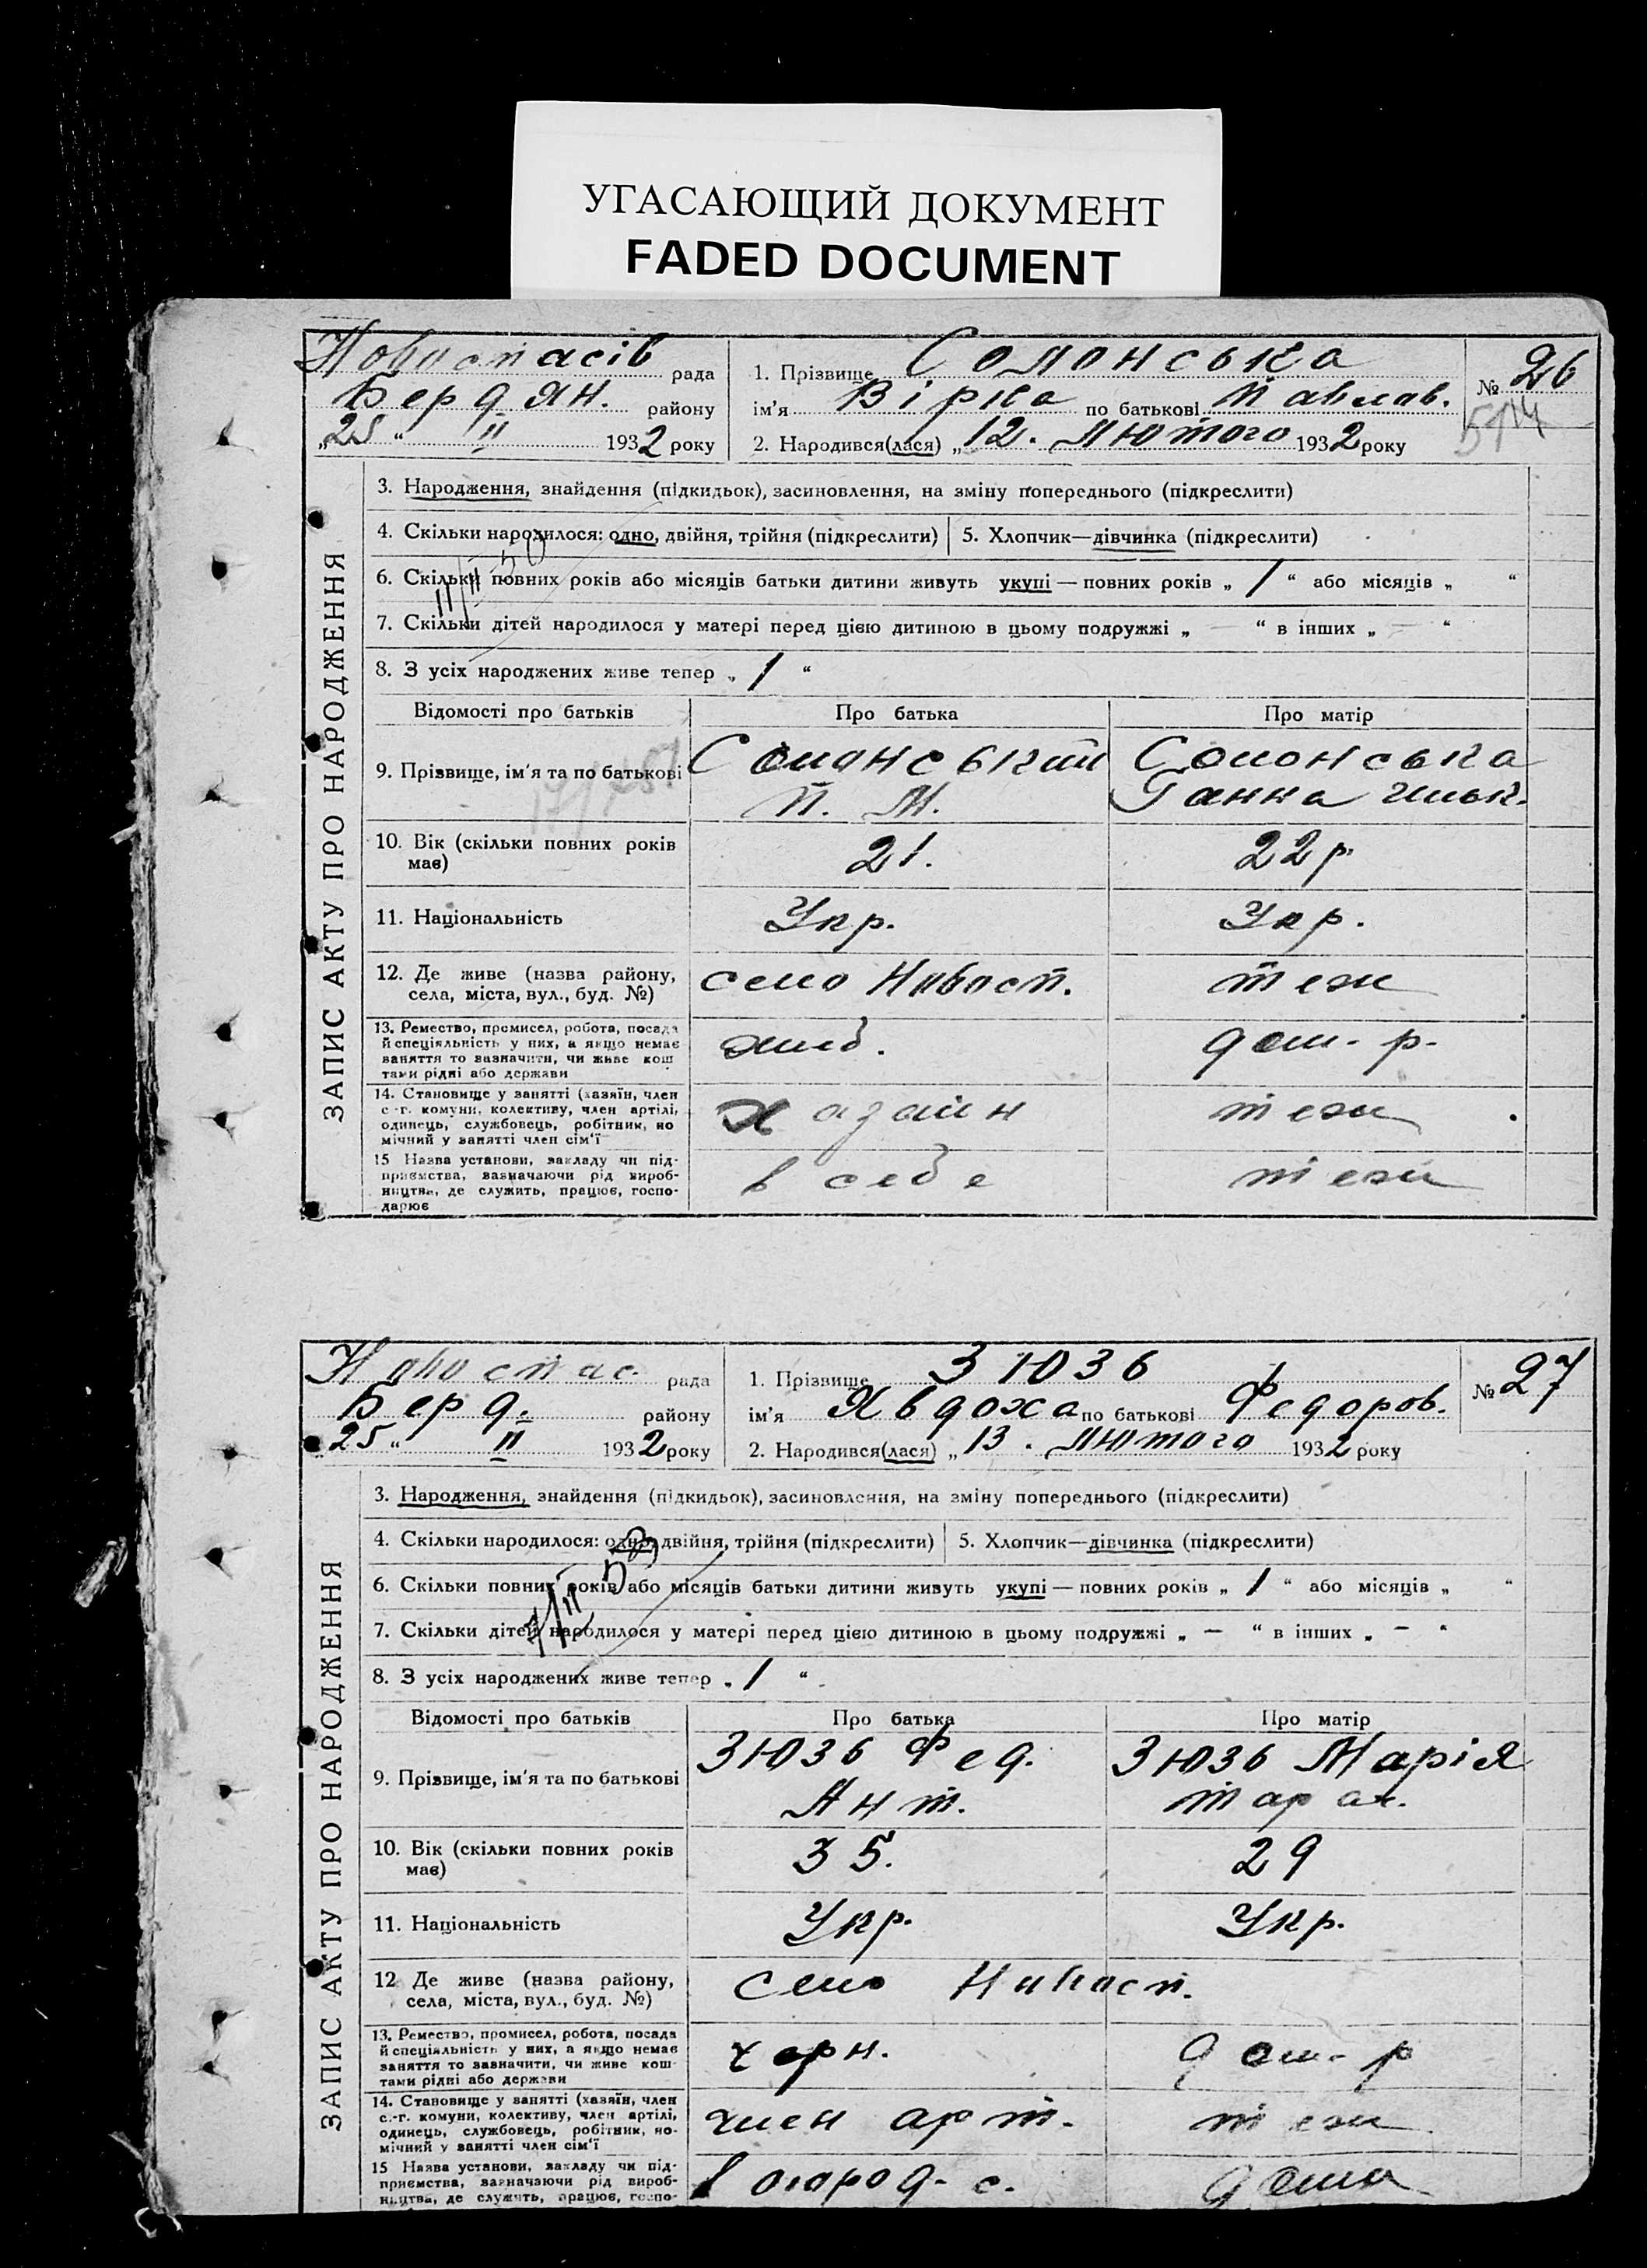 УГАСАЮЩИЙ ДОКУМЕНТ
FADED DOCUMENT
Новоспасів рада
Бердян. району
„25“ II 1932 року
1. Прізвище Солонська
ім'я Вірка по батькові Павлов.
2. Народився(лася) „12. Лютого 1932 року
№ 26
ЗАПИС АКТУ ПРО НАРОДЖЕННЯ
3. Народження, знайдення (підкидьок), засиновлення, на зміну попереднього (підкреслити)
4. Скільки народилося: одно, двійня, трійня (підкреслити)
5. Хлопчик—дівчинка (підкреслити)
6. Скільки повних років або місяців батьки дитини живуть укупі — повних років „ 1 “ або місяців „ “
7. Скільки дітей народилося у матері перед цією дитиною в цьому подружжі „ — “ в інших „ — “
8. З усіх народжених живе тепер „ 1 “
Відомості про батьків Про батька Про матір
9. Прізвище, ім'я та по батькові Солонський Солонська
П. М. Ганна
10. Вік (скільки повних років має) 21. 22 р.
11. Національність Укр. Укр.
12. Де живе (назва району, село Новосп. теж
села, міста, вул., буд. №)
13. Ремество, промисел, робота, посада
й спеціяльність у них, а якщо немає дом. р.
заняття то зазначити, чи живе кош
тами рідні або держави
14. Становище у занятті (хазяїн, член
с.-г. комуни, колективу, член артілі, хазаїн теж
одинець, службовець, робітник, по
мічний у занятті член сім'ї
15 Назва установи, закладу чи під-
приємства, зазначаючи рід вироб- в себе теж
ництва, де служить, працює, госпо-
дарює
Новоспас. рада
Берд. району
25“ II 1932 року
1. Прізвище Зюзь
ім'я Явдоха по батькові Федоров.
2. Народився(лася) „13. Лютого 1932 року
№ 27
ЗАПИС АКТУ ПРО НАРОДЖЕННЯ
3. Народження, знайдення (підкидьок), засиновлення, на зміну попереднього (підкреслити)
4. Скільки народилося: одно, двійня, трійня (підкреслити)
5. Хлопчик—дівчинка (підкреслити)
6. Скільки повних років або місяців батьки дитини живуть укупі — повних років „ 1 “ або місяців „ “
7. Скільки дітей народилося у матері перед цією дитиною в цьому подружжі „ — “ в інших „ — “
8. З усіх народжених живе тепер „ 1 “
Відомості про батьків Про батька Про матір
9. Прізвище, ім'я та по батькові Зюзь Фед. Зюзь Марія
Ант. Тарас.
10. Вік (скільки повних років має) 35. 29
11. Національність Укр. Укр.
12 Де живе (назва району, село Новосп.
села, міста, вул., буд. №)
13. Ремество, промисел, робота, посада
й спеціяльність у них, а якщо немає чорн. дом. р
заняття то зазначити, чи живе кош-
тами рідні або держави
14. Становище у занятті (хазяїн, член
с.-г. комуни, колективу, член артілі, член арт. теж
одинець, службовець, робітник, по-
мічний у занятті член сім'ї
15 Назва установи, закладу чи під-
приємства, зазначаючи рід вироб- в огород. с. дома
ництва, де служить, працює, госпо-